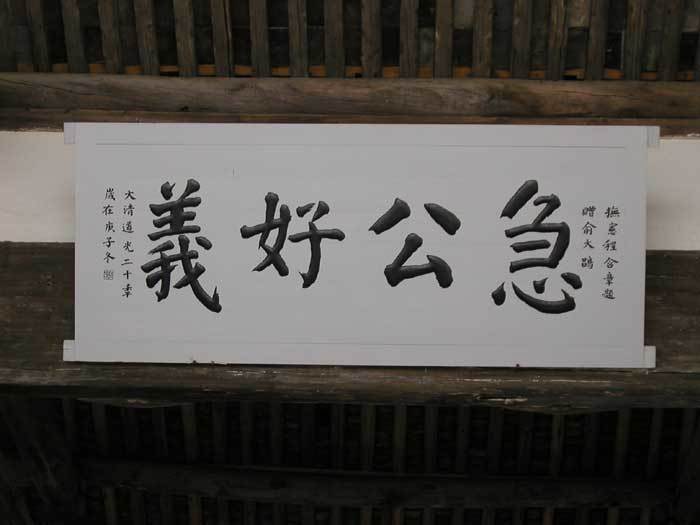 撫憲程含章題
贈俞大鵾
急公好義
大清道光二十年
歲在庚子冬